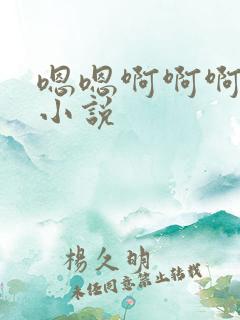 嗯嗯啊啊啊
小说
杨久明
未经同意禁止转载